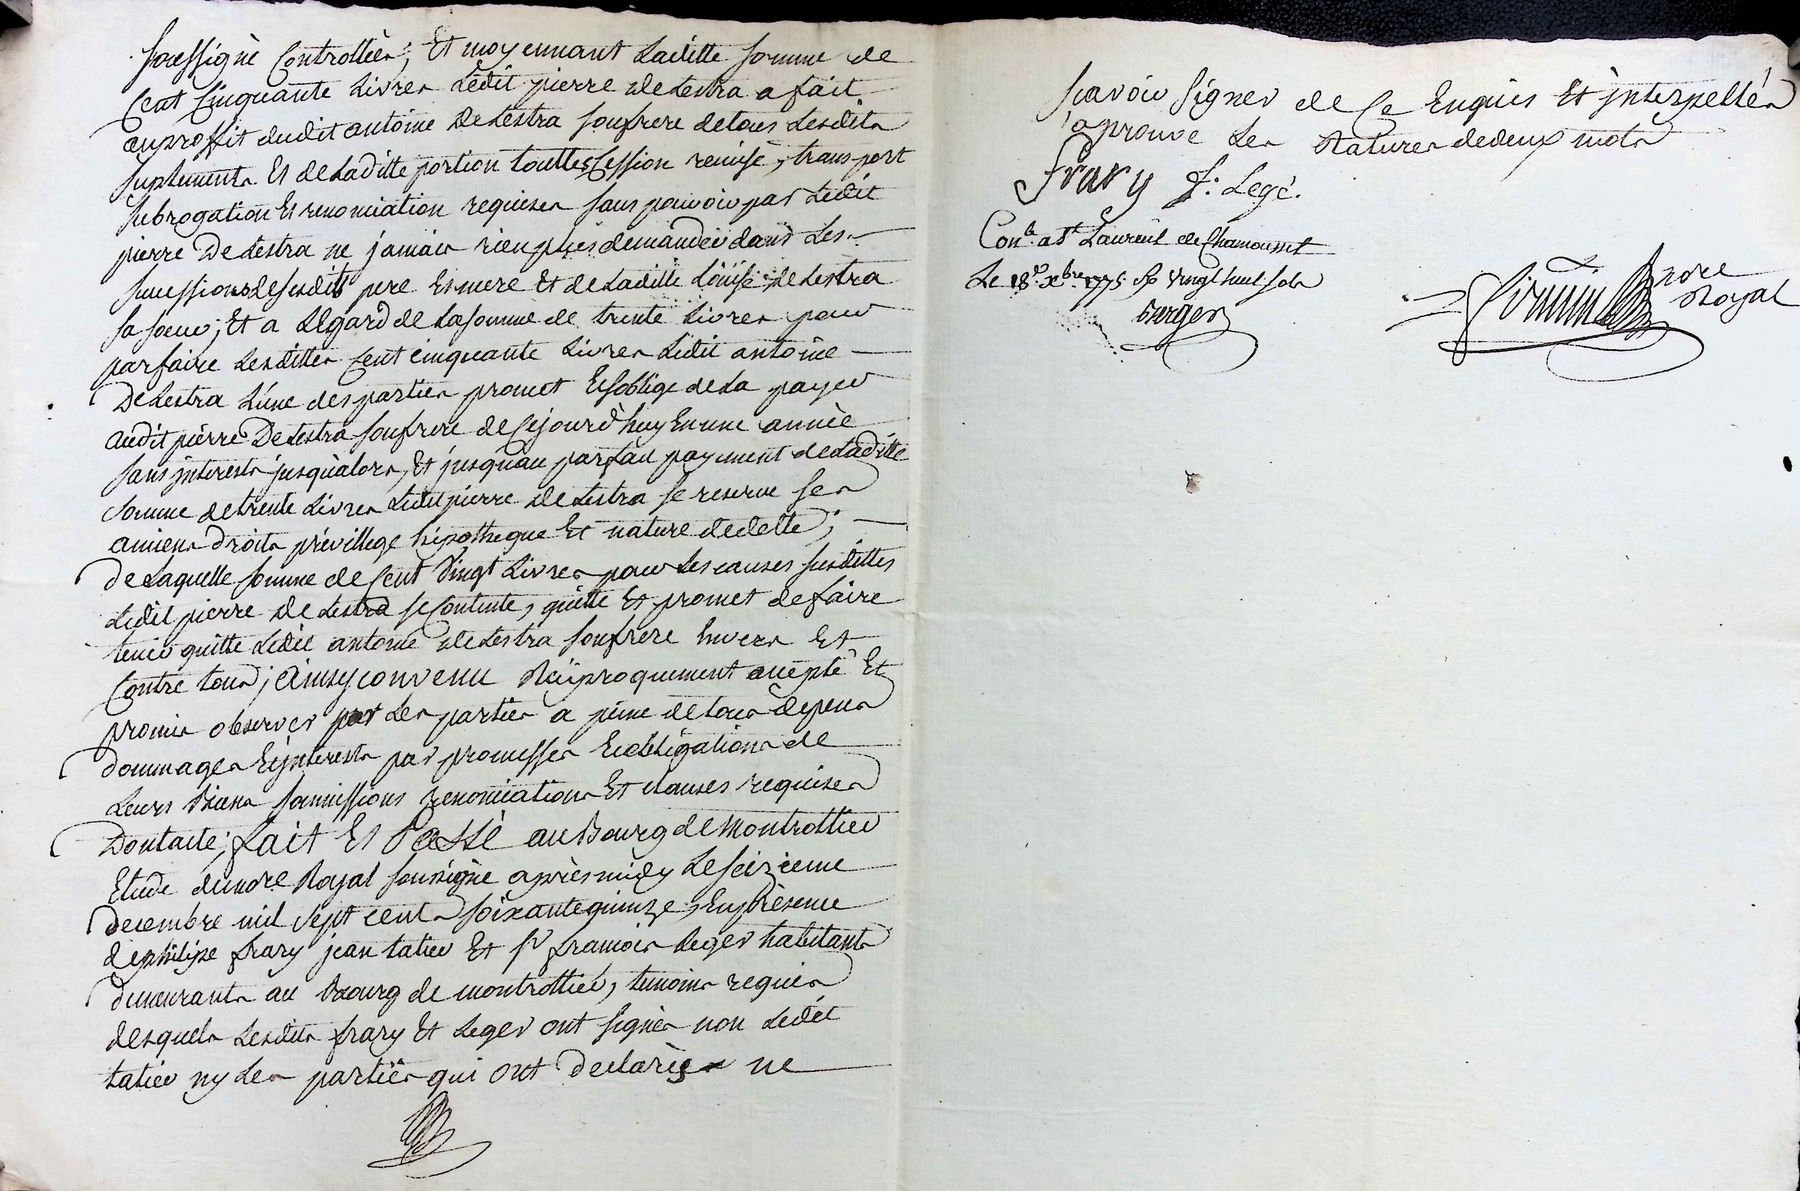 soussigné Controllée; Et moyennant Laditte somme de
Cent Cinquante Livres Ledit pierre De Lestra a fait
auproffit dudit antoine De Lestra sonfrere detous Lesdits
suplements Et de Laditte portion touttes Cession remise, transport
subrogation Et renonciation requises sans pouvoir par Ledit
pierre De Lestra ne jamais rien plus demander dans Les
successions desesdits pere Et mere Et de Laditte Loüise De Lestra
sa soeur; Et a Légard de La somme de trente Livres pour
parfaire Lesdittes Cent cinquante Livres Ledit antoine
De Lestra L'une des parties promet Et soblige de La payer
audit pierre De Lestra sonfrere de Cejourd'huy En une année
sans interests jusqu'alors, Et jusqu'au parfait payment de Laditte
somme de trente Livres Ledit pierre De Lestra se reserve ses
anciens droits privillege hipotheque Et nature de dette;
de Laquelle somme de Cent Vingt Livres pour Les causes susdittes
Ledit pierre De Lestra se Contente, quitte Et promet de faire
tenir quitte Ledit antoine De Lestra sonfrere Envers Et
Contre tous; ainsy convenu Réciproquement accepté Et
promis observer par Les parties a peine de tous depens
dommages Et interests par promesses Et obligations de
Leurs Biens soumissions renonciations Et clauses requises
Dont acte; fait Et Passé au Bourg de Montrottier
Etude dunore Royal soussigné après midy Le seizieme
decembre mil sept cents soixante quinze, En présence
de philipe frary jean tatier Et sr francois Leger habitants
demeurants au Bourg de montrottier, temoins requis
desquels Lesdits frary Et Leger ont signés non Ledit
tatier ny Les parties qui ont declarées ne
scavoir signer de Ce Enquis Et interpellés
aprouvé Les Ratures de deux mots
frary f. Legé.
Conlé. a St Laurent de Chamousset
Le 18e. Xbre 1775 Rs Vingt huit sols
Burger
nore
Royal